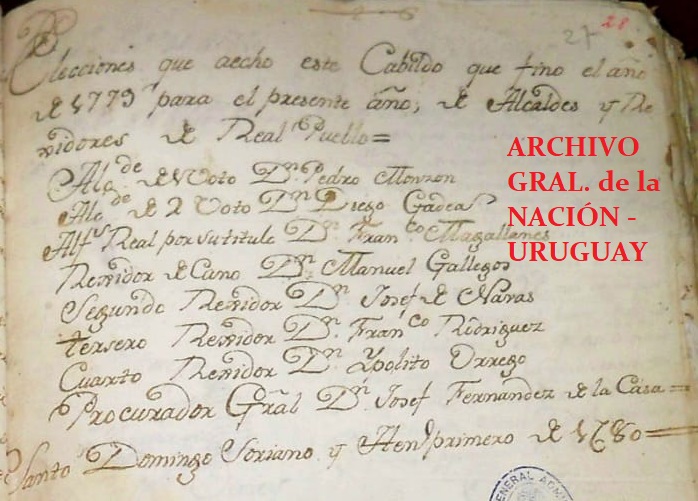 27 28
Elecciones que aecho este Cabildo que fino el año
de 1779 para el presente año, de Alcaldes y Re
xidores de Real Puello=
Alc.de de 1 Voto D.n Pedro Monzon
Alc.de de 2 Voto D.n Diego Gadea
Alf.s Real por su titulo D.n Fran.co Magallanes
Rexidor de Cano D.n Manuel Gallegos
Segundo Rexidor D.n Josef de Navas
tersero Rexidor D.n Fran.co Rodriguez
Cuarto Rexidor D.n Ypolito Urrego
Procurador Gral D.n Josef Fernandez de la Casa=
Santo Domingo Soriano y Hen.o primero de 1780=
ARCHIVO
GRAL. de la
NACIÓN -
URUGUAY
GENERAL